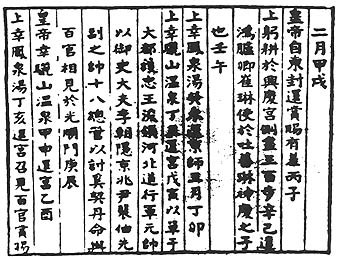 二月甲戌
皇帝自東封還賞賜有差丙子
上躬耕於興慶宮側盡三百步辛己遣
鴻臚卿崔琳使於吐蕃琳神慶之子
也壬午
上幸鳳泉湯癸未還京師五月丁卯
上幸驪山溫泉丁還宮戊寅以單于
大都護忠王浚領河北道行軍元帥
以御史大夫李朝隱京兆尹裴伯先
副之帥十八總管以討奚契丹命與
百官相見於光順門庚辰
皇帝幸驪山溫泉甲申還宮乙酉
上幸鳳泉湯丁亥還宮召見百官賞賜